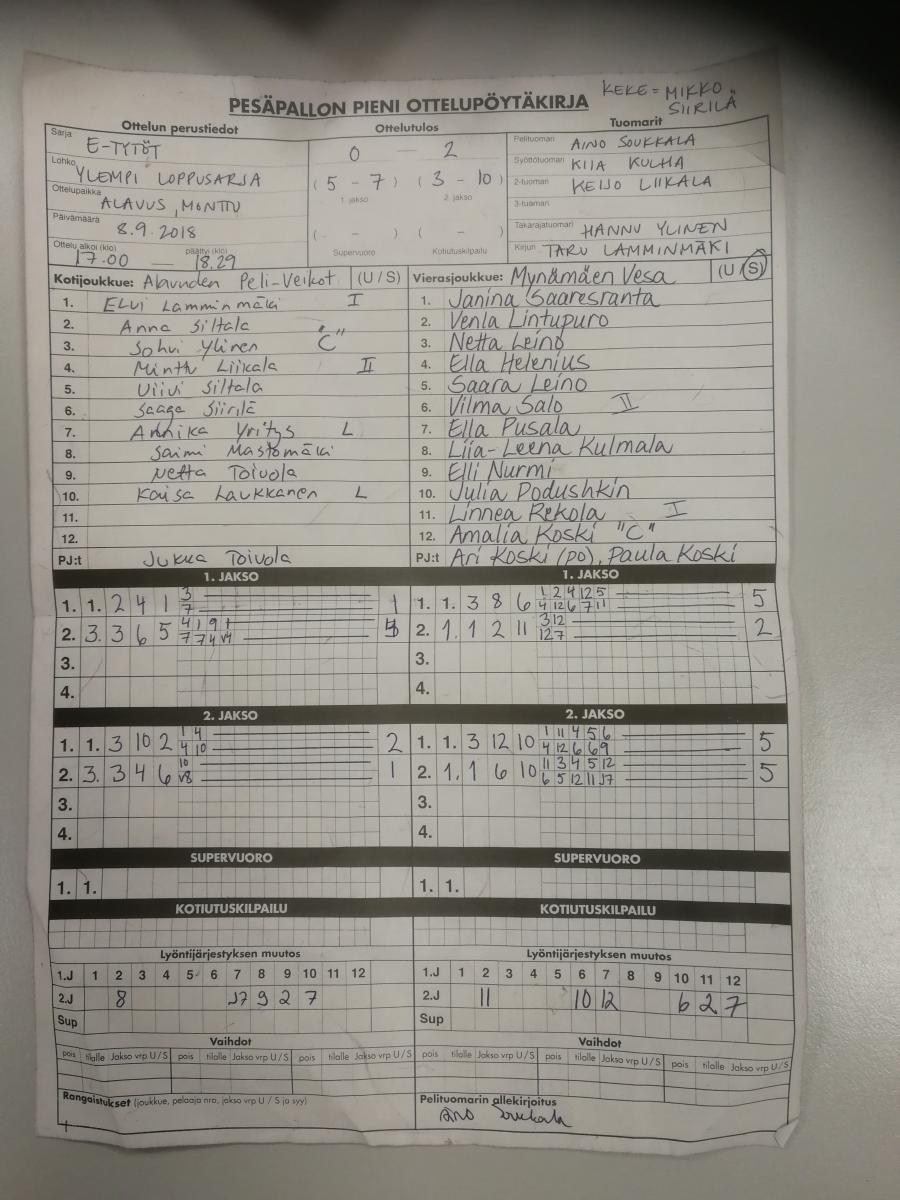 KEKE = MIKKO SIIRILÄ
PESÄPALLON PIENI OTTELUPÖYTÄKIRJA
Ottelun perustiedot Ottelutulos Tuomarit
Sarja E-TYTÖT 0 — 2 Pelituomari AINO SOUKKALA
Lohko YLEMPI LOPPUSARJA (5 - 7) (3 - 10) Syöttötuomari KIIA KULHA
Ottelupaikka ALAVUS, MONTTU 1. jakso 2. jakso 2-tuomari KEIJO LIIKALA
3-tuomari
Päivämäärä 8.9.2018 ( - ) ( - ) Takarajatuomari HANNU YLINEN
Ottelu alkoi (klo) 17.00 — päättyi (klo) 18.29 Supervuoro Kotiutuskilpailu Kirjuri TARU LAMMINMÄKI
Kotijoukkue: Alavuden Peli-Veikot (U / S) Vierasjoukkue: Mynämäen Vesa (U / S)
1. Elvi Lamminmäki I 1. Janina Saaresranta
2. Anna Siltala 2. Venla Lintupuro
3. Sohvi Ylinen "C" 3. Netta Leino
4. Minttu Liikala II 4. Ella Helenius
5. Viivi Siltala 5. Saara Leino
6. Saaga Siirilä 6. Vilma Salo II
7. Annika Yritys L 7. Ella Pusala
8. Saimi Mastomäki 8. Liia-Leena Kulmala
9. Netta Toivola 9. Elli Nurmi
10. Kaisa Laukkanen L 10. Julia Podushkin
11. 11. Linnea Rekola I
12. 12. Amalia Koski "C"
PJ:t Jukka Toivola PJ:t Ari Koski (PO), Paula Koski
1. JAKSO 1. JAKSO
3 1 2 4 12 5
1. 1. 2 4 1 7 1 1. 1. 3 8 6 4 12 6 7 11 5
4 1 9 1 3 12
2. 3. 3 6 5 7 7 4 2. 1. 1 2 11 12 7 2
3. 3.
4. 4.
2. JAKSO 2. JAKSO
1 4 1 11 4 5 6
1. 1. 3 10 2 4 10 2 1. 1. 3 12 10 4 12 6 6 9 5
10 11 3 4 5 12
2. 3. 3 4 6 V8 1 2. 1. 1 6 10 6 5 12 11 J7 5
3. 3.
4. 4.
SUPERVUORO SUPERVUORO
1. 1. 1. 1.
KOTIUTUSKILPAILU KOTIUTUSKILPAILU
Lyöntijärjestyksen muutos Lyöntijärjestyksen muutos
1.J 1 2 3 4 5 6 7 8 9 10 11 12 1.J 1 2 3 4 5 6 7 8 9 10 11 12
2.J 8 J7 9 2 7 2.J 11 10 12 6 2 7
Sup Sup
Vaihdot Vaihdot
pois tilalle Jakso vrp U / S pois tilalle Jakso vrp U / S pois tilalle Jakso vrp U / S pois tilalle Jakso vrp U / S pois tilalle Jakso vrp U / S pois tilalle Jakso vrp U / S
Rangaistukset (joukkue, pelaaja nro, jakso vrp U / S ja syy) Pelituomarin allekirjoitus
Aino Soukkala